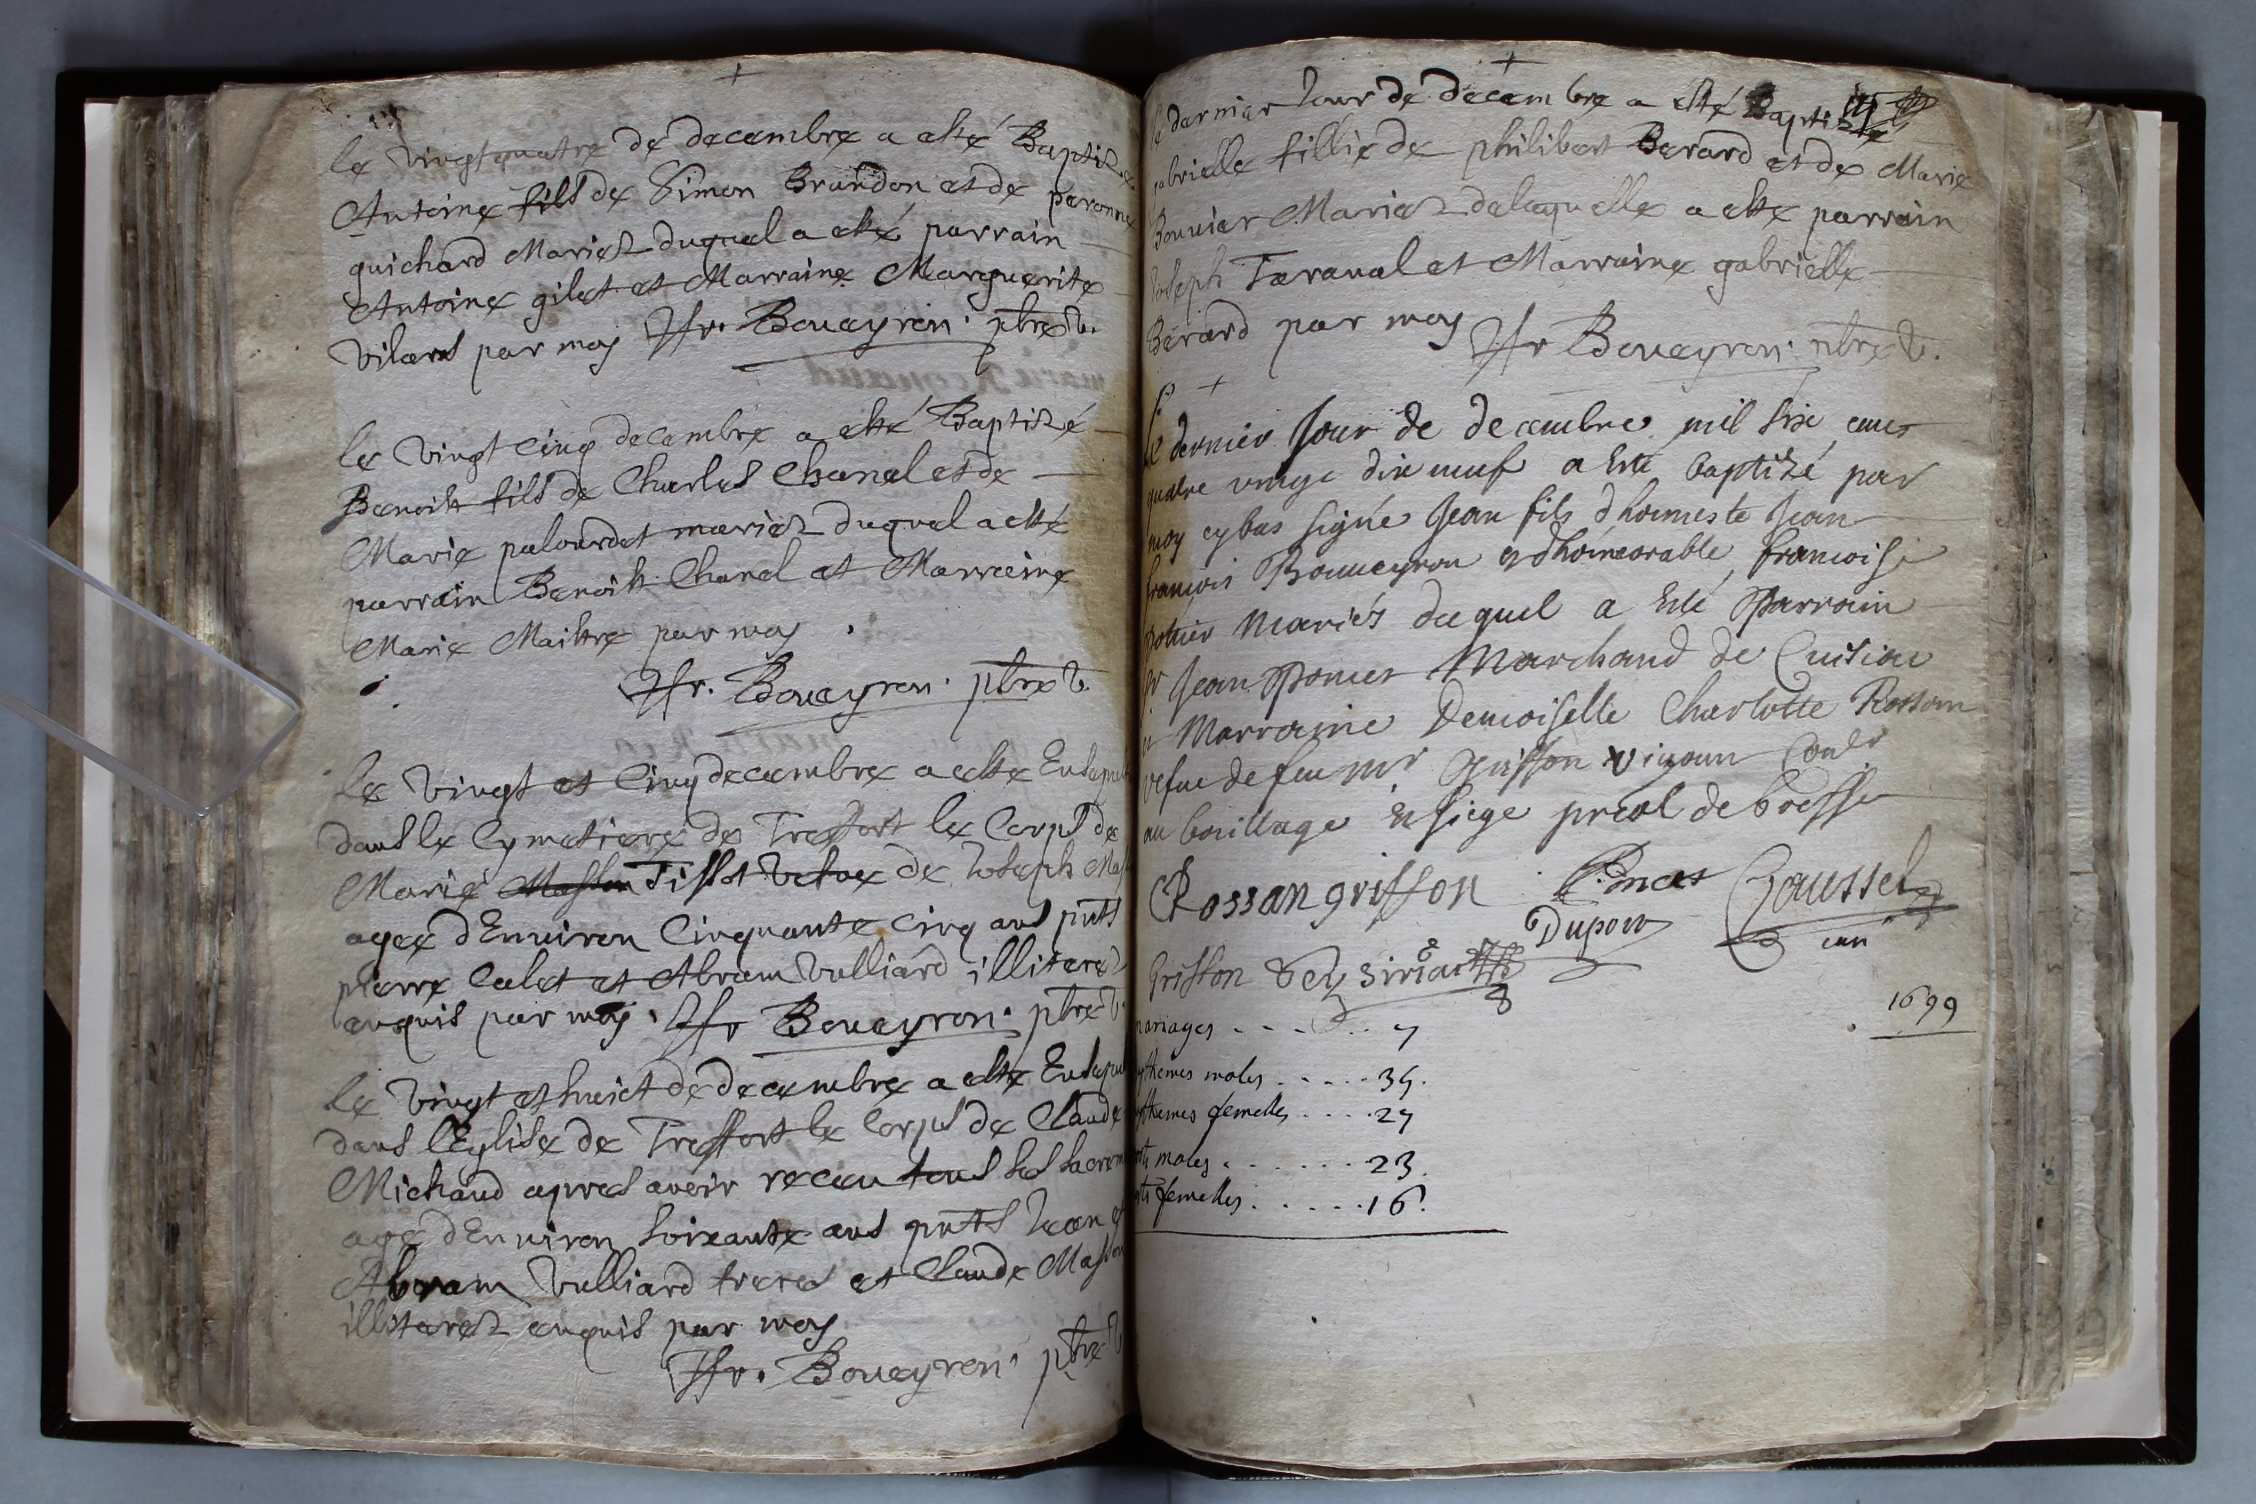 le vingtquatre de decembre a esté Baptizé
Antoine fils de Simon Brandon et de peronne
guichard Mariez duquel a esté parrain
Antoine gilet et Marraine Marguerite
vilars par moy Bouayron. ptre v.
le vingt cinq decembre a esté Baptizé
Benoist fils de Charles Chanel et de
Marie palourdet mariez duquel a esté
parrain Benoist Chanel et Marraine
Marie Maistre par moy
Bouayron. ptre v.
Le vingt et cinq decembre a este
dans le Cymetiere de Treffort le Corps de
Marie Tissot vefve de Joseph
agee d'Environ Cinquante cinq ans pnts
pierre Calet et Abram Vulliard illiterez
enquis par moy. Bouayron. ptre v.
Le vingt et huict de decembre a este
dans l'Eglise de Treffort le Corps de Claude
Michaud apres avoir receu tous les
age d'Environ soixante ans pnts Jean et
Abram Vulliard freres et Claude Masson
illiterez enquis par moy
Bouayron. ptre v
le dernier Jour de decembre a esté Baptizée
gabrielle fillie de philibert Berard et de Marie
Bouvier Mariez de laquelle a este parrain
Joseph Taravel et Marraine gabrielle
Berard par moy
Bouayron. ptre v.
Le dernier Jour de decembre mil six cens
quatre vingt dix neuf a esté baptizé par
moy cy bas signé Jean fils d'honneste Jean
francois Bouueyron et d'honneorable francoise
poncer Mariés duquel a esté Parrain
Sr Jean Poncer Marchand de Cuisiac
et Marraine Demoiselle Charlotte Rossan
vefue de feu mr Grisson viuant Conler
au bailliage et siege preal de bresse
C Rossan grisson Poncet Gaussel
Dupont cure
Grisson
1699
mariages - - - - . . 7
bapthemes males . . . . . 35.
bapthemes femelles . . . . 27
morts males . . . . . . . 23.
morts femelles . . . . . . 16.